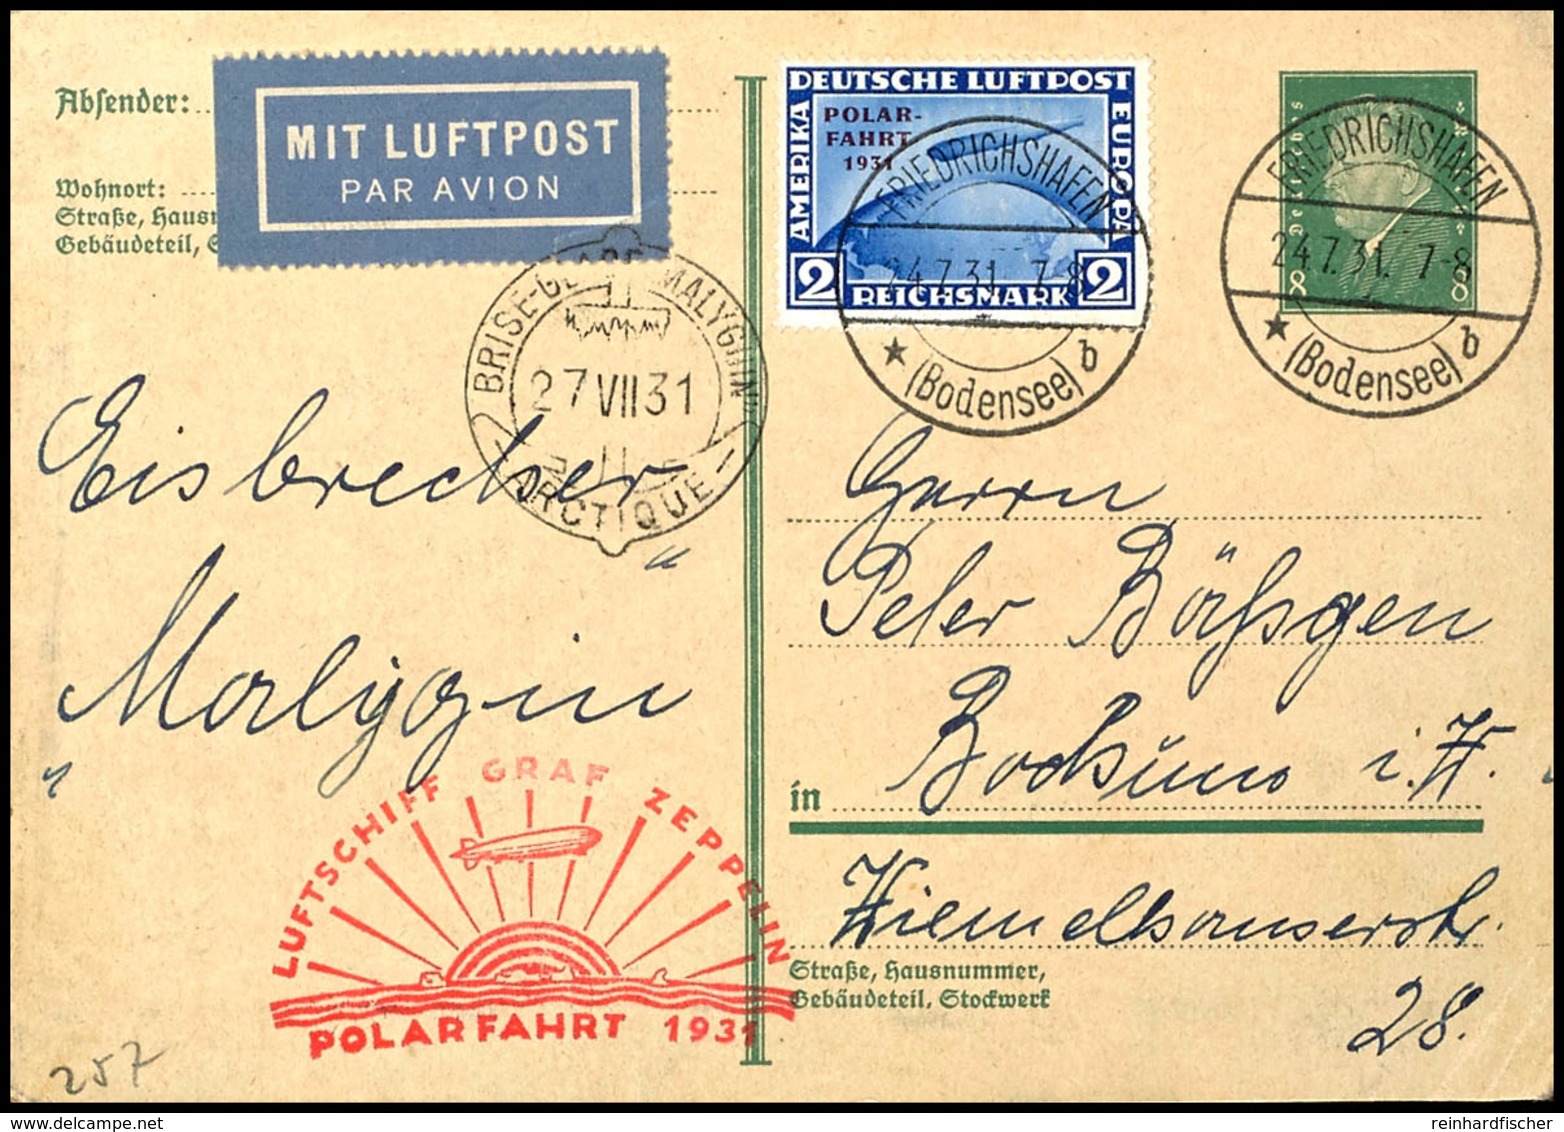 Absender:
MIT LUFTPOST
PAR AVION
Wohnort:
Straße, Hausn
Gebäudeteil, S
DEUTSCHE LUFTPOST
AMERIKA
EUROPA
POLAR-
FAHRT
1931
2 REICHSMARK 2
FRIEDRICHSHAFEN
24.7.31. 7-8
(Bodensee) b
FRIEDRICHSHAFEN
24.7.31. 7-8
(Bodensee) b
8 8
MALYGUIN
27 VII 31
ARCTIQUE
Eisbrecher
"Malygin"
Herrn
Peter
in Bochum i. W.
28.
Straße, Hausnummer,
Gebäudeteil, Stockwerk
LUFTSCHIFF GRAF ZEPPELIN
POLARFAHRT 1931
257
reinhardfischer